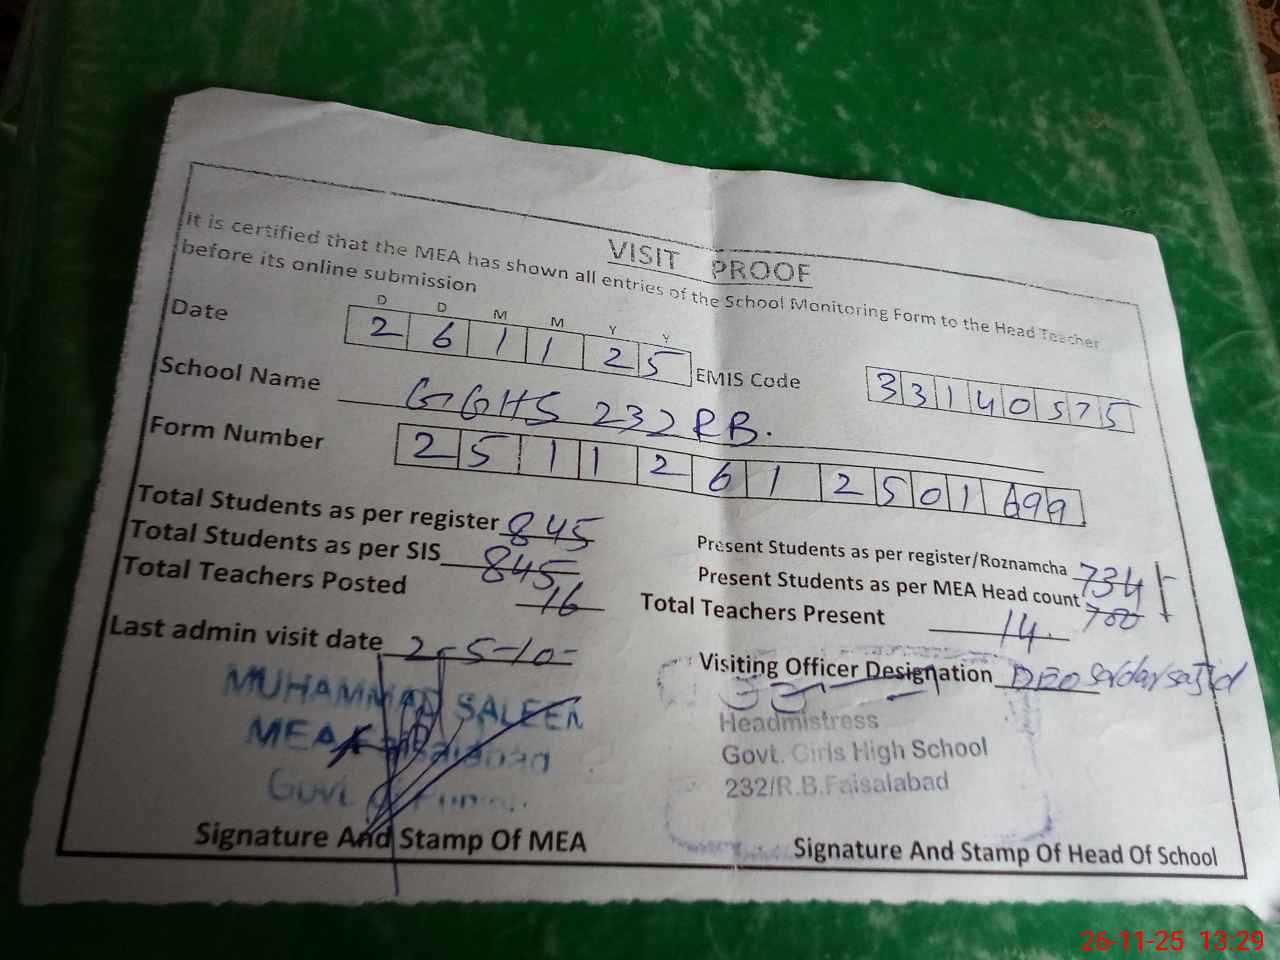 VISIT PROOF
it is certified that the MEA has shown all entries of the School Monitoring Form to the Head Teacher
before its online submission
D D M M Y Y
Date 2 6 1 1 2 5 EMIS Code 3 3 1 4 0 5 7 5
School Name GGHS 232 RB.
Form Number 2 5 1 1 2 6 1 2 5 0 1 6 9 9
Total Students as per register 845 Present Students as per register/Roznamcha 734
Total Students as per SIS 845 Present Students as per MEA Head count 700
Total Teachers Posted 16 Total Teachers Present 14.
Last admin visit date 2-5-10- Visiting Officer Designation DEO Sardar Sajid
MUHAMMAD SALEEM
MEA Faisalabad
Govt. of Punjab
Headmistress
Govt. Girls High School
232/R.B.Faisalabad
Signature And Stamp Of MEA Signature And Stamp Of Head Of School
26-11-25 13:29